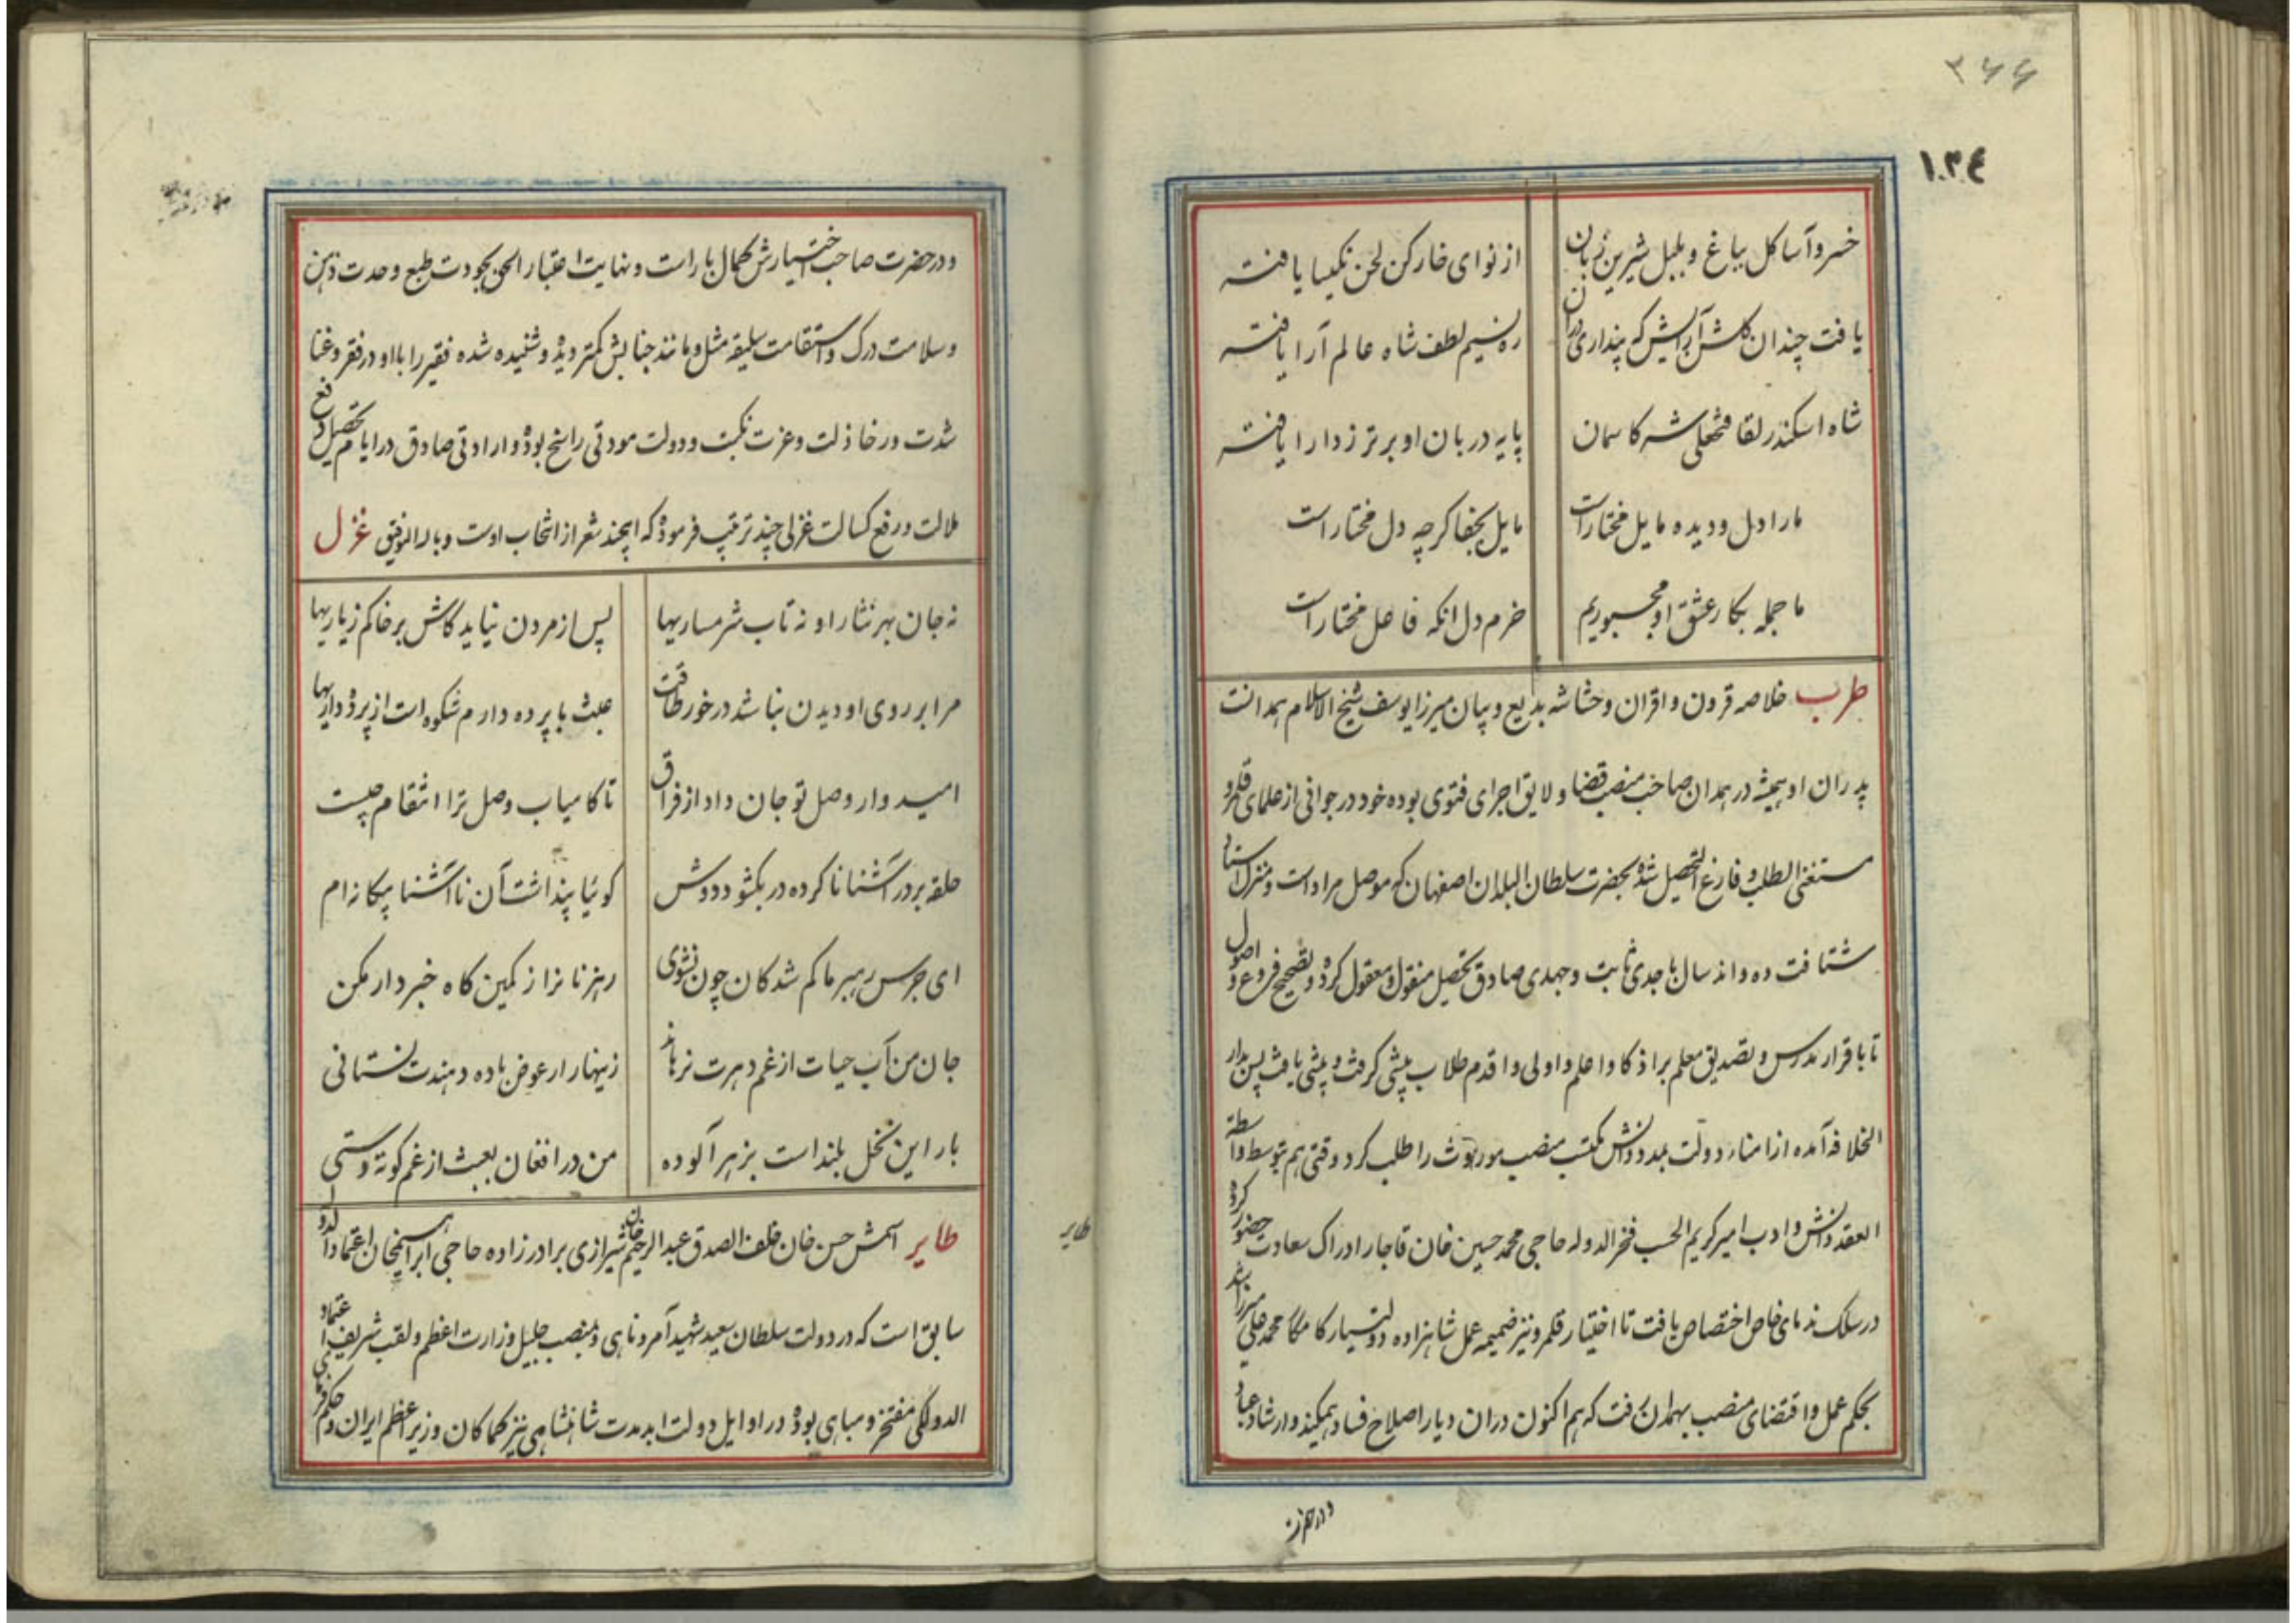 ۳۶۶
۱۳۴
خسرو آسا کل بباغ و بلبل شیرین زبان از نوای خارکن لحن نکیسا یافته
یافت چندان کلشن آرایش که پنداری دران ره نسیم لطف شاه عالم آرا یافته
شاه اسکندر لقا فتحعلی شه کاسمان پایه دربان او برتر ز دارا یافته
ما را دل و دیده مایل مختار است مایل بجفا کرچه دل مختار است
ما جمله بکار عشق او مجبوریم خرم دل انکه فاعل مختار است
طرب خلاصه قرون و اقران و حشاشه بدیع و بیان میرزا یوسف شیخ الاسلام همدانست
پدران او همیشه در همدان صاحب منصب قضا و لایق اجرای فتوی بوده خود در جوانی از علمای قلمرو
مستغنی الطلب و فارغ التحصیل شده بحضرت سلطان البلدان اصفهان که موصل مراد است و منزل استاد
شتافت ده و اند سال با جدی ثابت و جهدی صادق تحصیل منقول و معقول کرده و تصحیح فروع و اصول
تا باقرار مدرس و تصدیق معلم بر اذکا و اعلم و اولی و اقدم طلاب پیشی کرفت و بیشی یافت پس بدار
الخلافه آمده از امناء دولت بمدد دانش مکتب منصب موروث را طلب کرد وقتی هم بتوسط و واسطه
العقد دانش و ادب امیر کریم الحسب فخر الدوله حاجی محمد حسین خان قاجار ادراک سعادت حضور کرده
در سلک ندمای خاص اختصاص یافت تا اختیار قلمرو نیز ضمیمه عمل شاهزاده دولتیار کامکا محمد علی میرزا شد
بحکم عمل و اقتضای منصب بهمدان رفت که هم اکنون دران دیار اصلاح فساد همیکند و ارشاد عباد
و در حضرت
و در حضرت صاحب اختیارش کمال یاراست و نهایت اعتبار الحق بجودت طبع و حدت ذهن
و سلامت درک و استقامت سلیقه مثل و مانند جنابش کمتر دیده و شنیده شده فقیر را با او در فقر و غنا
شدت و رخا ذلت و عزت نکبت و دولت مودتی راسخ بوده و ارادتی صادق در ایام تحصیل و دفع
ملالت و رفع کسالت غزلی چند ترتیب فرموده که اینچند شعر از انتخاب اوست و بالله التوفیق غزل
نه جان بهر نثار او نه تاب شرمساریها پس از مردن نیاید کاش بر خاکم ز یاریها
مرا بر روی او دیدن نباشد در خور طاقت عبث با پرده دارم شکوه است از پرده داریها
امیدوار وصل تو جان داد از فراق تا کامیاب وصل ترا انتقام چیست
حلقه بر در آشنا نا کرده در بکشود دوش کوئیا پنداشت آن نا آشنا بیکانه ام
ای جرس رهبر ما کم شدکان چون نشوی رهزنانرا ز کمین کاه خبردار مکن
جان من آب حیات از غم دهرت نرهاند زینهار ار عوض باده دهندت نستانی
بار این نخل بلند است بزهر آلوده من در افغان بعبث از غم کوته دستی
طایر
طایر اسمش حسن خان خلف الصدق عبد الرحیم خان شیرازی برادرزاده حاجی ابراهیمخان اعتماد الدوله
سابق است که در دولت سلطان سعید شهید آمر و ناهی و بمنصب جلیل وزارت اعظم و لقب شریف اعتماد
الدولکی مفتخر و مباهی بوده در اوایل دولت ابد مدت شاهنشاهی نیز کماکان وزیر اعظم ایران و حکم